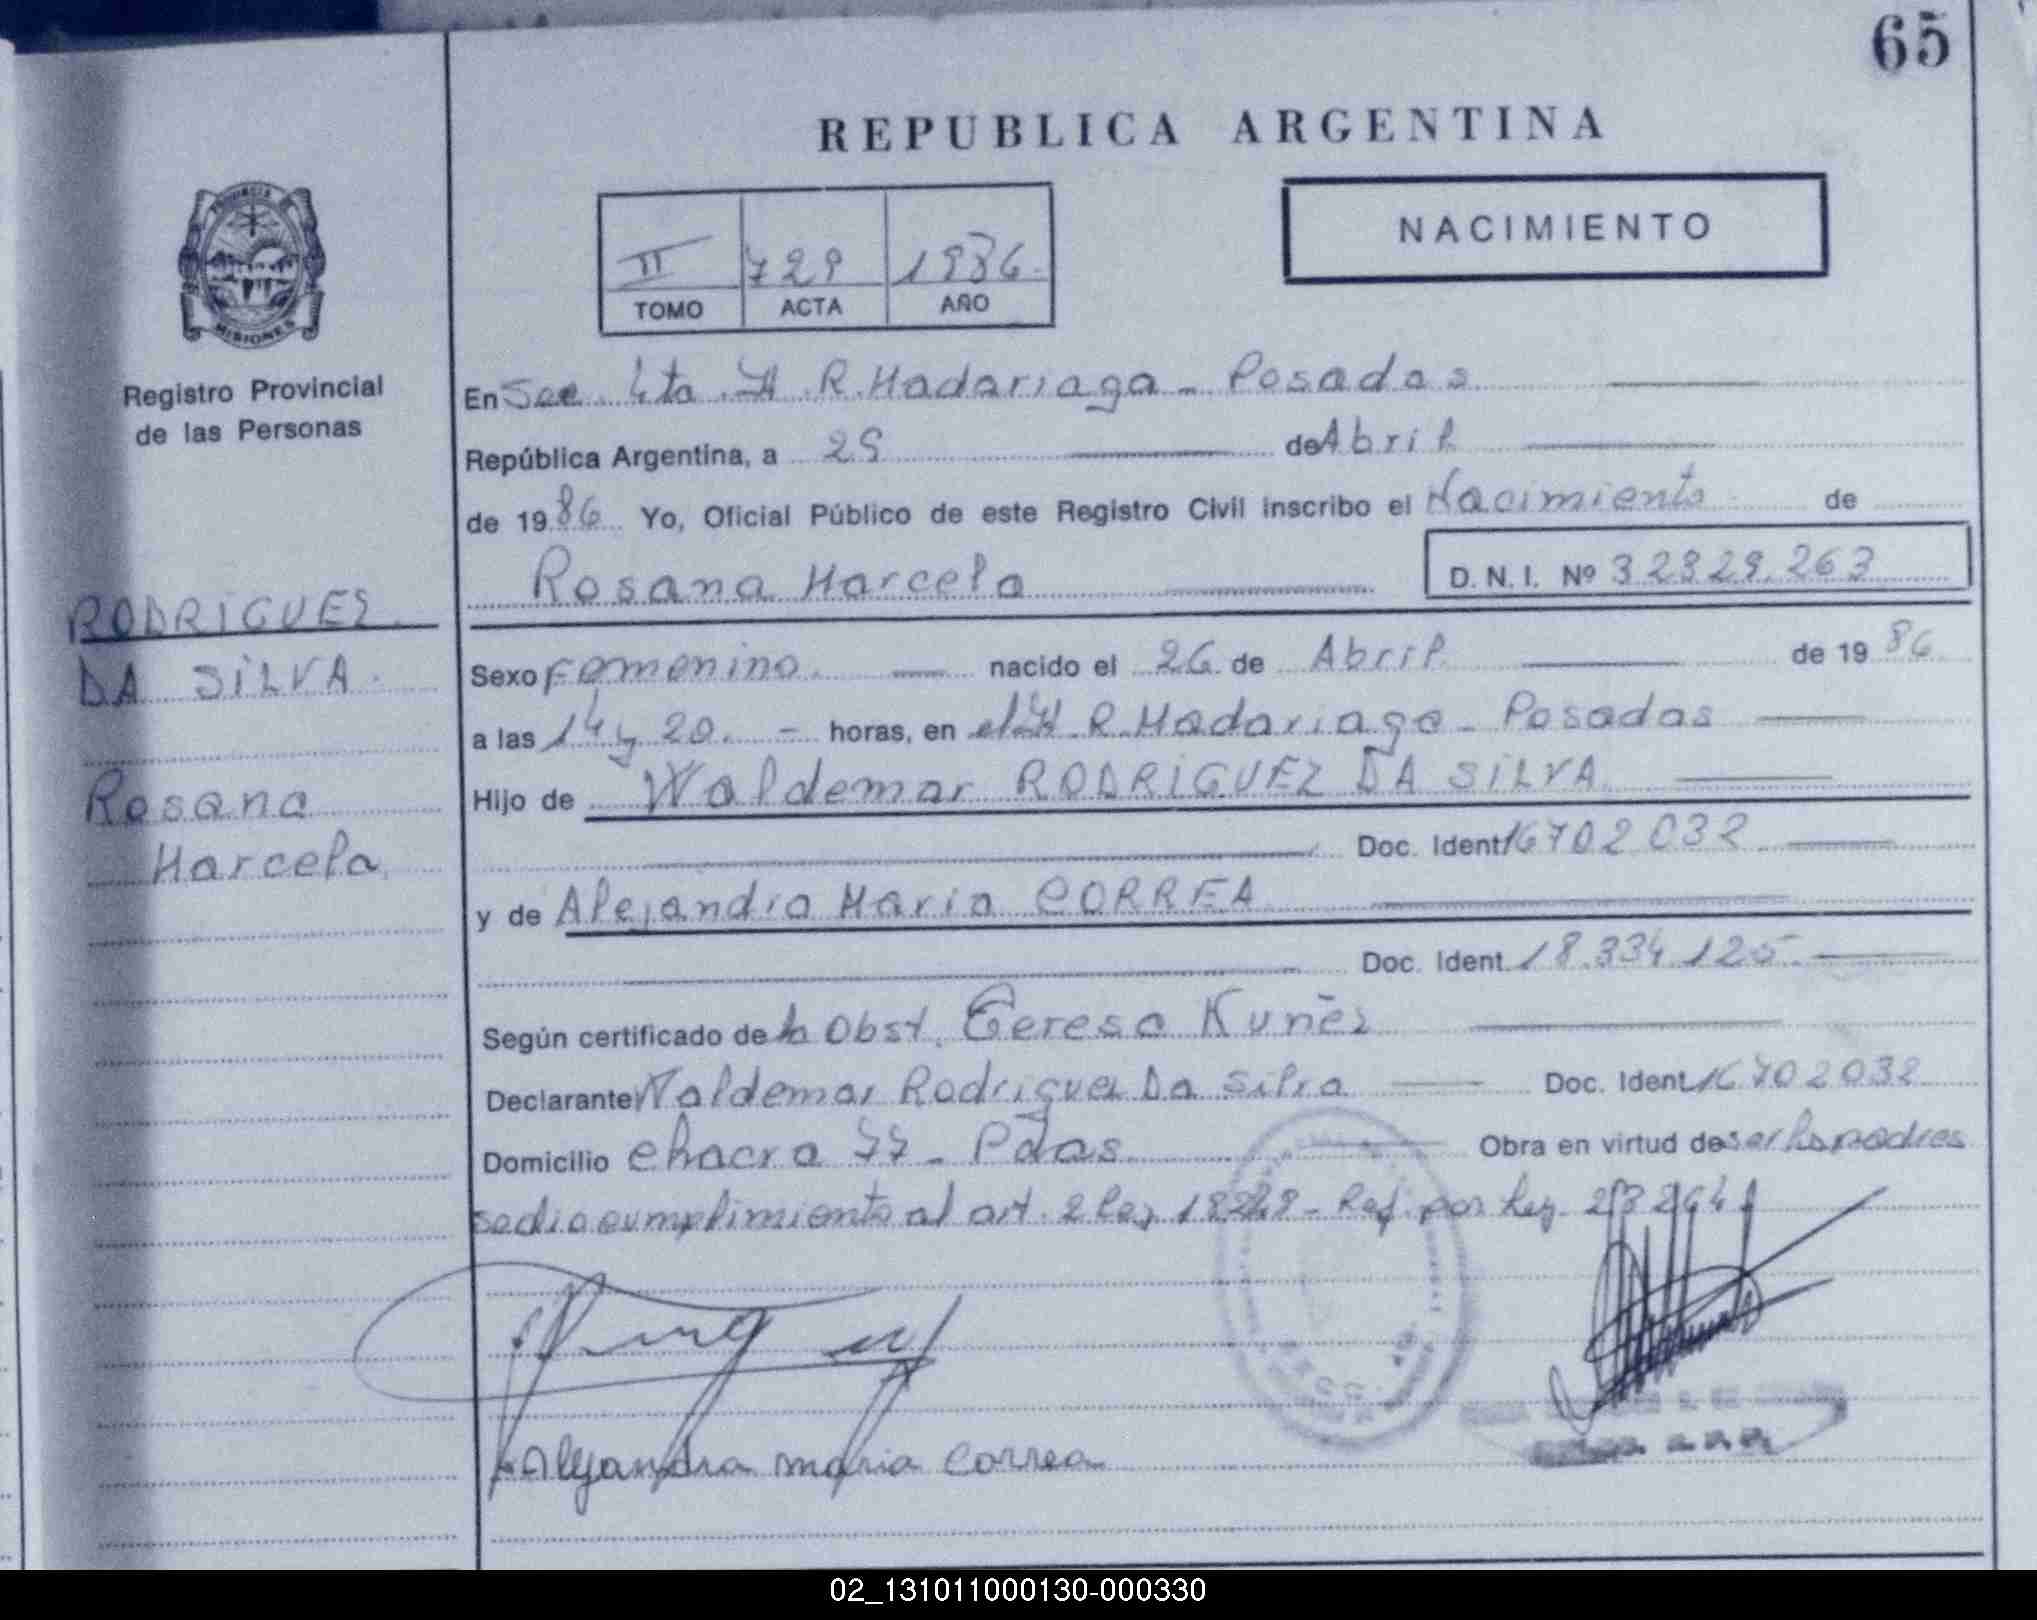 65
REPUBLICA ARGENTINA
NACIMIENTO
II 729 1986
TOMO ACTA AÑO
PROVINCIA DE
MISIONES
Registro Provincial
de las Personas
RODRIGUEZ
DA SILVA
Rosana
Marcela
En Sec. 4ta H. R. Madariaga - Posadas
República Argentina, a 29 de Abril
de 1986 Yo, Oficial Público de este Registro Civil inscribo el Nacimiento de
Rosana Marcela D. N. I. Nº 32329.263
Sexo Femenino nacido el 26 de Abril de 1986
a las 14 y 20. - horas, en el H. R. Madariaga - Posadas
Hijo de Waldemar RODRIGUEZ DA SILVA
Doc. Ident 16702032
y de Alejandra Maria CORREA
Doc. Ident. 18.334.125
Según certificado de la Obst. Teresa Nuñez
Declarante Waldemar Rodriguez Da Silva Doc. Ident. 16702032
Domicilio chacra 77 - Pdas Obra en virtud de ser los padres
se dio cumplimiento al art. 2 ley 18248 - Ref. por Ley 23264
Alejandra maria Correa
02_131011000130-000330